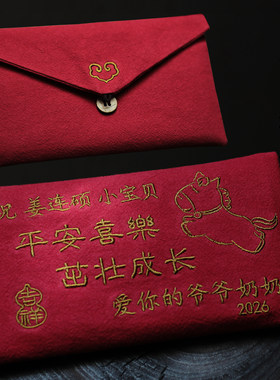 祝 姜连硕 小宝贝
平安喜樂
茁壮成长
吉祥
爱你的爷爷奶奶
2026